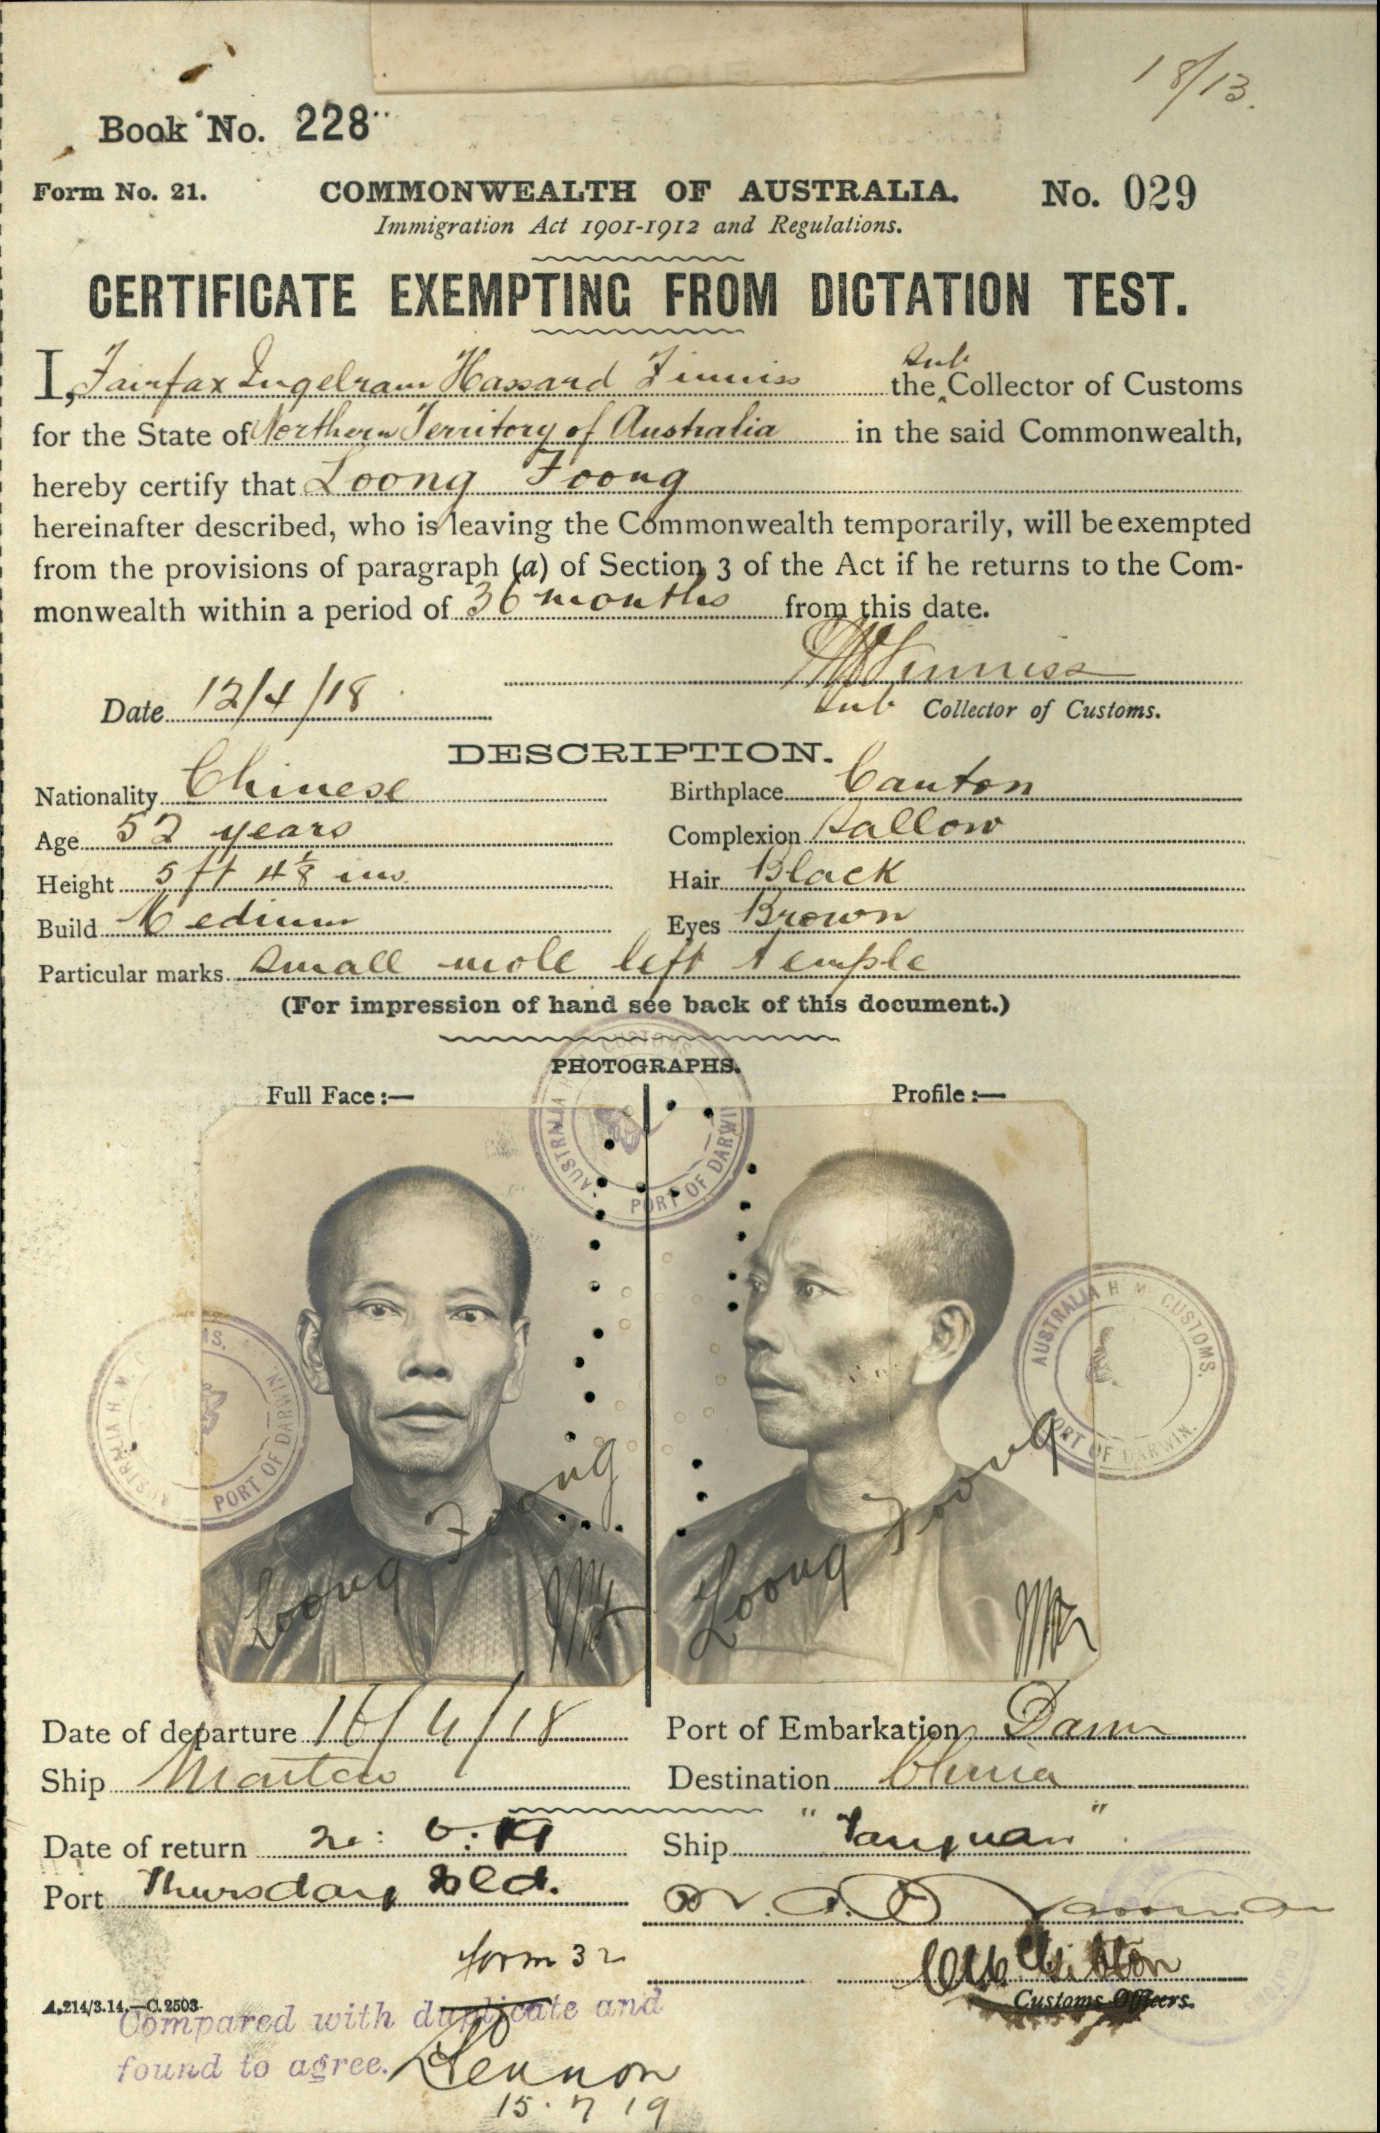 18/13.
Book No. 228
Form No. 21. COMMONWEALTH OF AUSTRALIA. No. 029
Immigration Act 1901-1912 and Regulations.
CERTIFICATE EXEMPTING FROM DICTATION TEST.
I, Fairfax Ingelram Hassard Finniss the sub Collector of Customs
for the State of Northern Territory of Australia in the said Commonwealth,
hereby certify that Loong Foong
hereinafter described, who is leaving the Commonwealth temporarily, will be exempted
from the provisions of paragraph (a) of Section 3 of the Act if he returns to the Com-
monwealth within a period of 36 months from this date.
Finniss
Date 12/4/18 Sub Collector of Customs.
DESCRIPTION.
Nationality Chinese Birthplace Canton
Age 52 years Complexion Sallow
Height 5 ft 4 1/8 ins Hair Black
Build Medium Eyes Brown
Particular marks small mole left temple
(For impression of hand see back of this document.)
PHOTOGRAPHS.
Full Face :— Profile :—
AUSTRALIA H. M. CUSTOMS. PORT OF DARWIN
AUSTRALIA H. M. CUSTOMS. PORT OF DARWIN
AUSTRALIA H. M. CUSTOMS. PORT OF DARWIN.
Loong Foong
Loong Foong
Date of departure 16/4/18 Port of Embarkation Darwin
Ship Mataram Destination China
Date of return 6:19 Ship "Taiyuan"
Port Thursday Isld.
form 32
Customs Officers.
A.214/3.14.—C.2503.
Compared with duplicate and
found to agree. Lennon
15.7 19